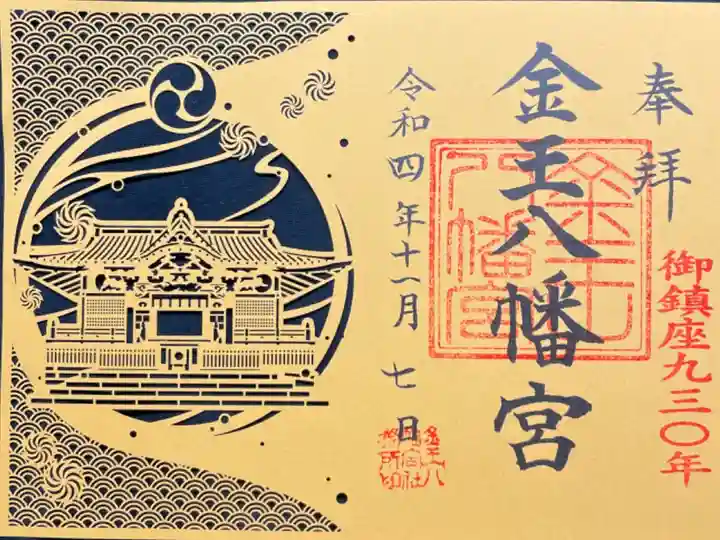 奉拝
御鎮座九三〇年
金王八幡宮
金王八幡宮
令和四年十一月七日